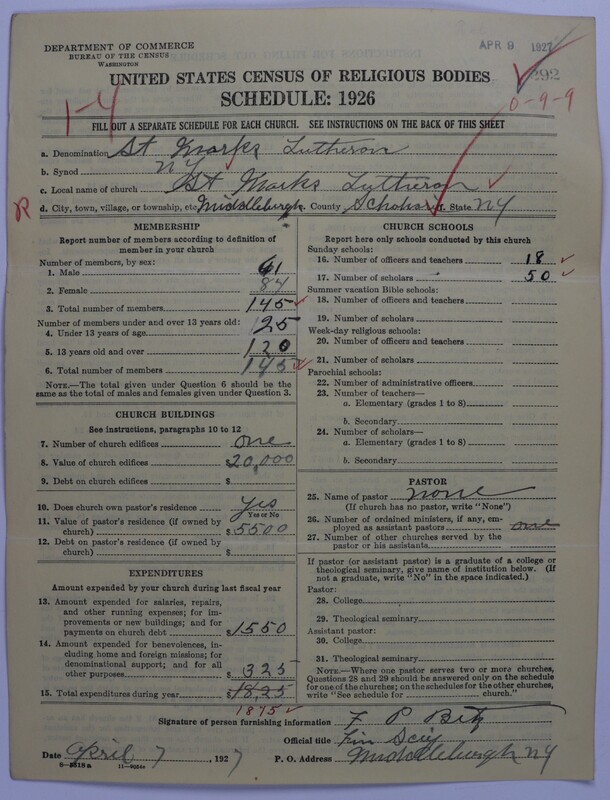 DEPARTMENT OF COMMERCE
BUREAU OF THE CENSUS
WASHINGTON
APR 9 1927
292
UNITED STATES CENSUS OF RELIGIOUS BODIES
SCHEDULE: 1926
1-4
0-9-9
FILL OUT A SEPARATE SCHEDULE FOR EACH CHURCH. SEE INSTRUCTIONS ON THE BACK OF THIS SHEET
a. Denomination St Marks Lutheron
b. Synod NY
c. Local name of church St Marks Lutheron
d. City, town, village, or township, etc. Middleburgh e. County Schohar f. State NY
R
MEMBERSHIP
Report number of members according to definition of
member in your church
Number of members, by sex:
1. Male 61
2. Female 84
3. Total number of members 145
Number of members under and over 13 years old:
4. Under 13 years of age 25
5. 13 years old and over 120
6. Total number of members 145
NOTE.—The total given under Question 6 should be
same as the total of males and females given under Question 3.
CHURCH BUILDINGS
See instructions, paragraphs 10 to 12
7. Number of church edifices one
8. Value of church edifices $20,000
9. Debt on church edifices $
10. Does church own pastor's residence yes
Yes or No
11. Value of pastor's residence (if owned by
church) $5500
12. Debt on pastor's residence (if owned by
church) $
EXPENDITURES
Amount expended by your church during last fiscal year
13. Amount expended for salaries, repairs,
and other running expenses; for im-
provements or new buildings; and for
payments on church debt $1550
14. Amount expended for benevolences, in-
cluding home and foreign missions; for
denominational support; and for all
other purposes $325
15. Total expenditures during year $1825
1875
CHURCH SCHOOLS
Report here only schools conducted by this church
Sunday schools:
16. Number of officers and teachers 18
17. Number of scholars 50
Summer vacation Bible schools:
18. Number of officers and teachers
19. Number of scholars
Week-day religious schools:
20. Number of officers and teachers
21. Number of scholars
Parochial schools:
22. Number of administrative officers
23. Number of teachers—
a. Elementary (grades 1 to 8)
b. Secondary
24. Number of scholars—
a. Elementary (grades 1 to 8)
b. Secondary
PASTOR
25. Name of pastor none
(If church has no pastor, write "None")
26. Number of ordained ministers, if any, em-
ployed as assistant pastors one
27. Number of other churches served by the
pastor or his assistants
If pastor (or assistant pastor) is a graduate of a college or
theological seminary, give name of institution below. (If
not a graduate, write "No" in the space indicated.)
Pastor:
28. College
29. Theological seminary
Assistant pastor:
30. College
31. Theological seminary
NOTE.—Where one pastor serves two or more churches,
Questions 28 and 29 should be answered only on the schedule
for one of the churches; on the schedules for the other churches,
write "See schedule for church."
Signature of person furnishing information F P Betz
Official title Fin Secy
Date April 7, 1927 P. O. Address Middleburgh NY